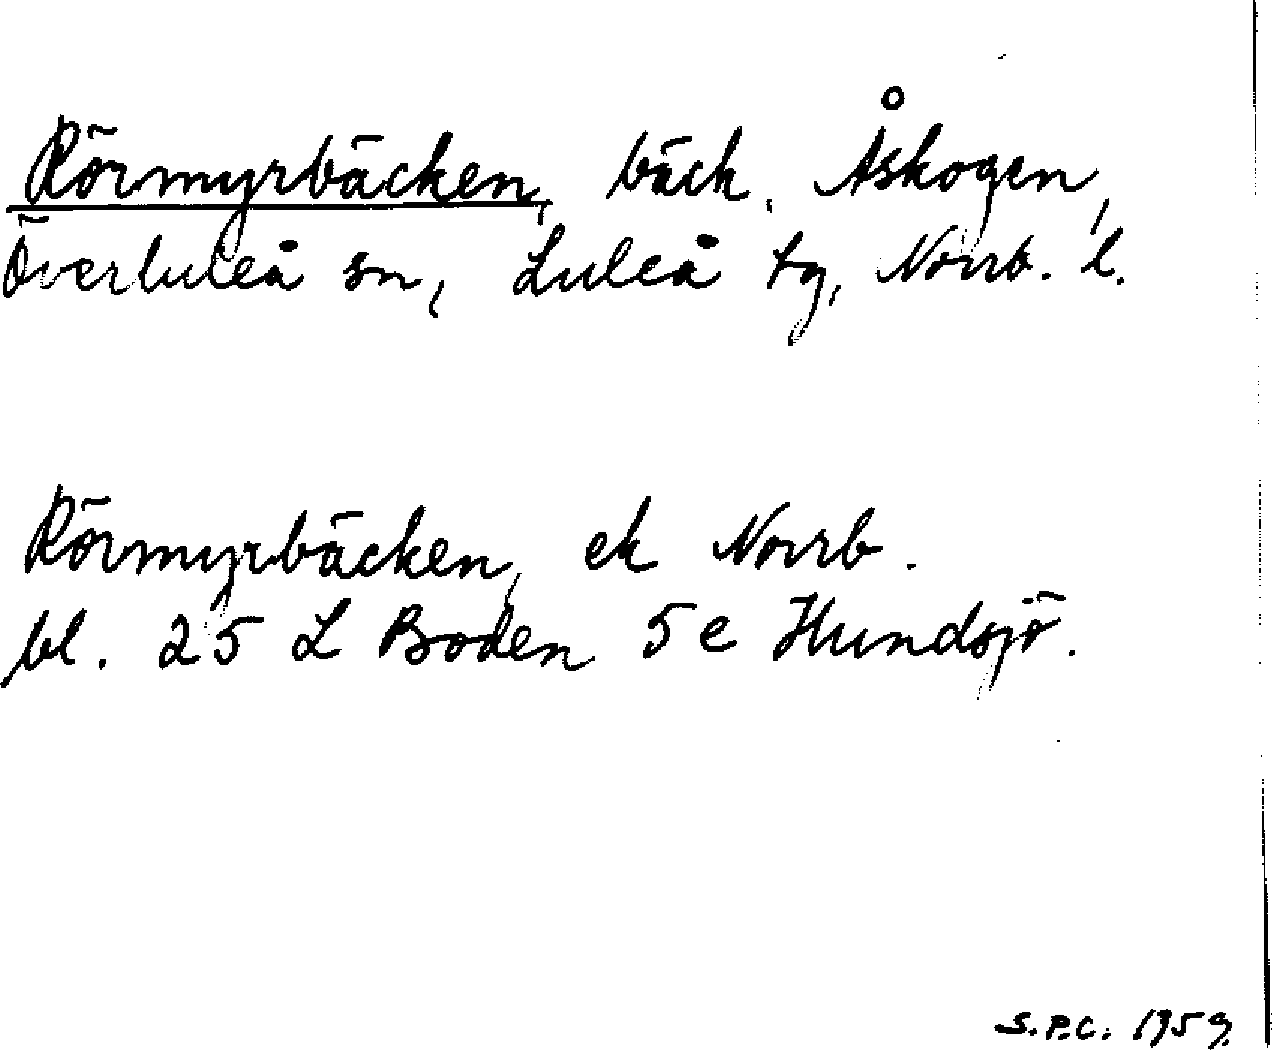 Rörmyrbäcken, bäck, Åskogen,
Överluleå sn, Luleå tg, Norrb. l.
Rörmyrbäcken, ek Norrb.
bl. 25 L Boden 5 e Hundsjö.
S.P.C. 1959.